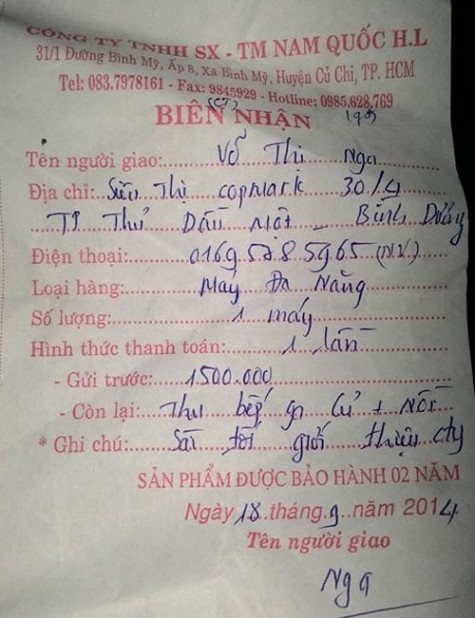 CÔNG TY TNHH SX - TM NAM QUỐC H.L
31/1 Đường Bình Mỹ, Ấp 8, Xã Bình Mỹ, Huyện Củ Chi, TP. HCM
Tel: 083.7978161 - Fax: 9845929 - Hotline: 0985.628.769
BIÊN NHẬN
Tên người giao: Võ Thị Nga
Địa chỉ: Siêu Thị copmark 30/4
TP Thủ Dầu Một - Bình Dương
Điện thoại: 0169.52.8.5965 (NV.)
Loại hàng: Máy Đa Năng
Số lượng: 1 máy
Hình thức thanh toán: 1 lần
- Gửi trước: 1500.000
- Còn lại: Thu bếp ga Củ + Nồi
* Ghi chú: Sãi tốt giới thiệu cty
SẢN PHẨM ĐƯỢC BẢO HÀNH 02 NĂM
Ngày 18 tháng 9 năm 2014
Tên người giao
Nga